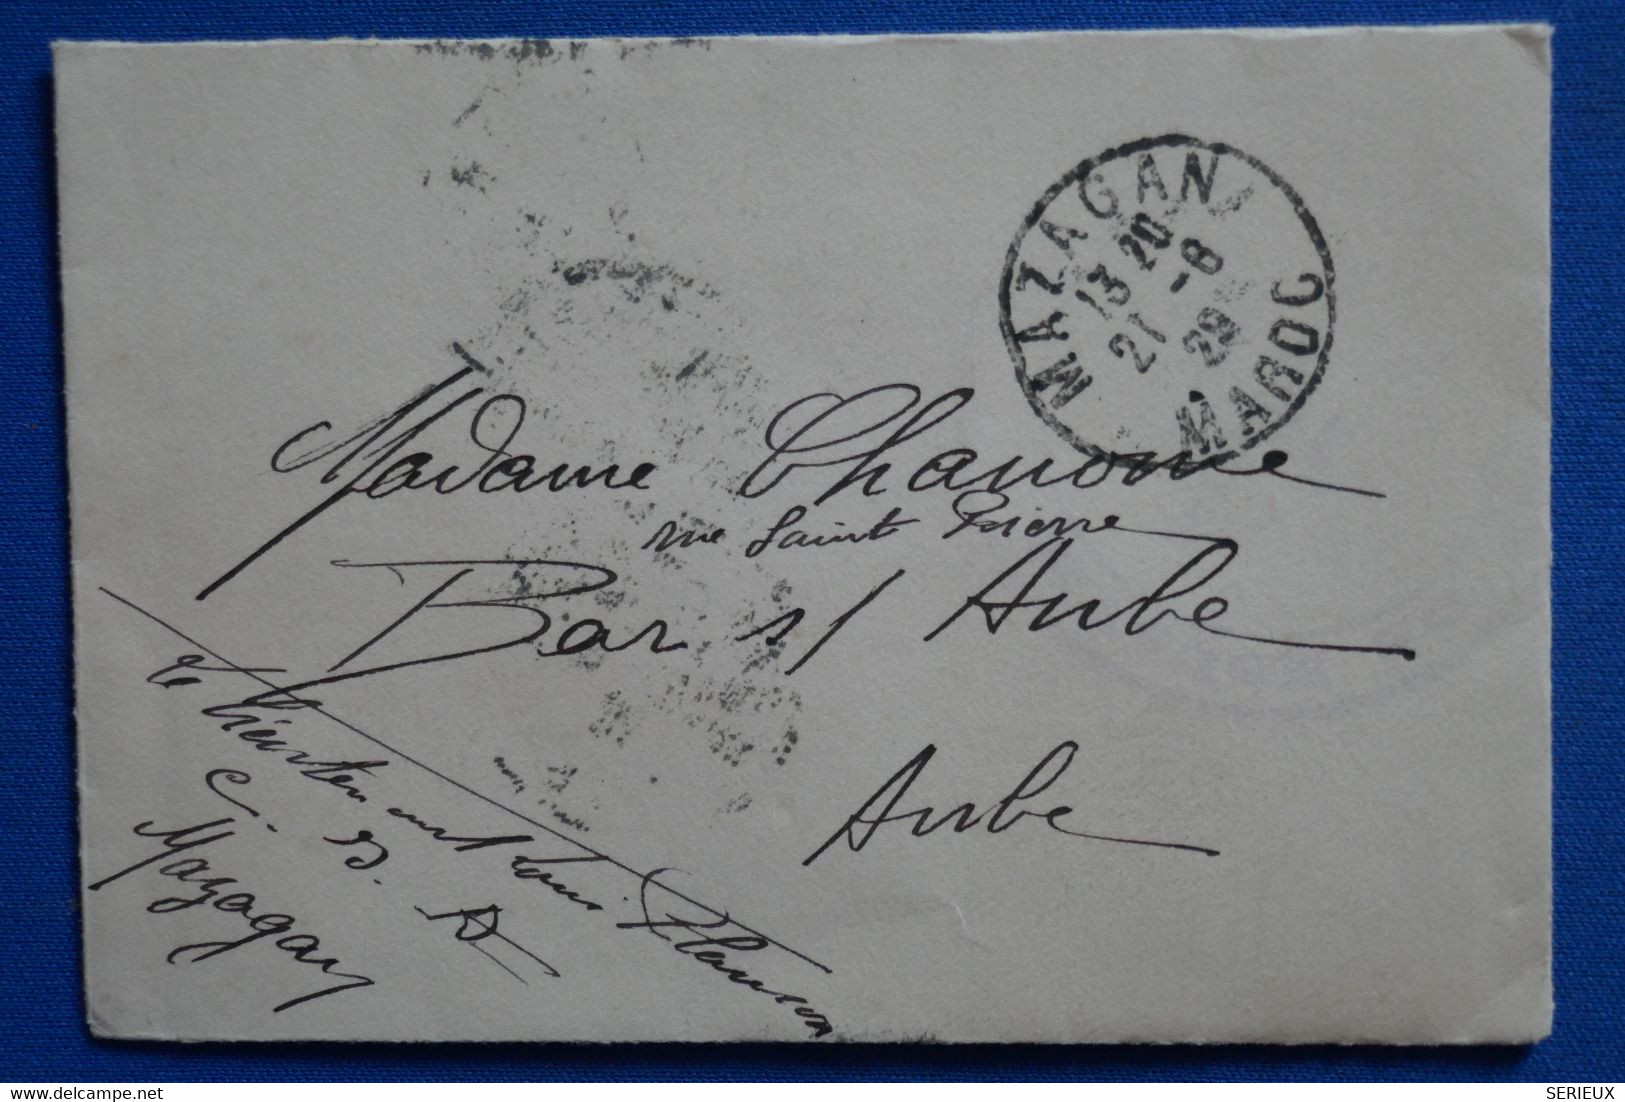 MAZAGAN
13 20
21 -8
29
MAROC
Madame Chanoine
rue Saint Pierre
Bar s/ Aube
Aube
Lieutenant Louis
Mazagan
© delcampe.net
SERIEUX